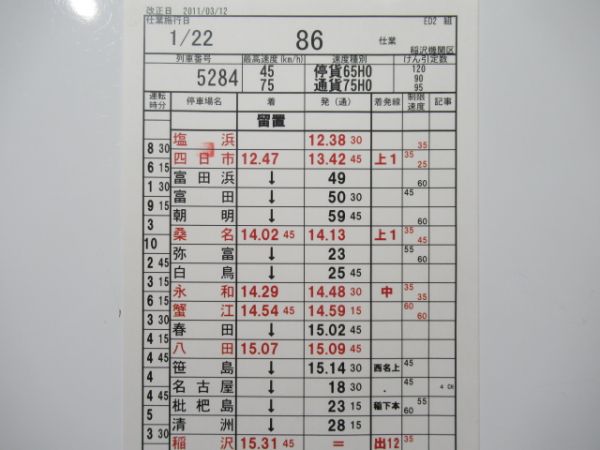 改正日 2011/03/12
仕業施行日 ED2 組
1/22 86 仕業
稲沢機関区
列車番号 最高速度(km/h) 速度種別 けん引定数
5284 45 停貨65H0 120
75 通貨75H0 90
95
運転時分 停車場名 着 発(通) 着発線 制限速度 記事
留置
塩浜 12.38 30 35
8 30
四日市 12.47 13.42 45 上1 35 25
6 15
富田浜 ↓ 49 60
1 30
富田 ↓ 50 30 45
9 15
朝明 ↓ 59 45
3
桑名 14.02 45 14.13 上1 35 45
10
弥富 ↓ 23 55 60
2 45
白鳥 ↓ 25 45
3 15
永和 14.29 14.48 30 中 35 35
6 15
蟹江 14.54 45 14.59 15 60 60
3 30
春田 ↓ 15.02 45
4 15
八田 15.07 15.09 45
4 45
笹島 ↓ 15.14 30 西名上 45
4
名古屋 ↓ 18 30 . 45
4 45
枇杷島 ↓ 23 15 稲下本 55 60
5
清洲 ↓ 28 15
3 30
稲沢 15.31 45 = 出12 35